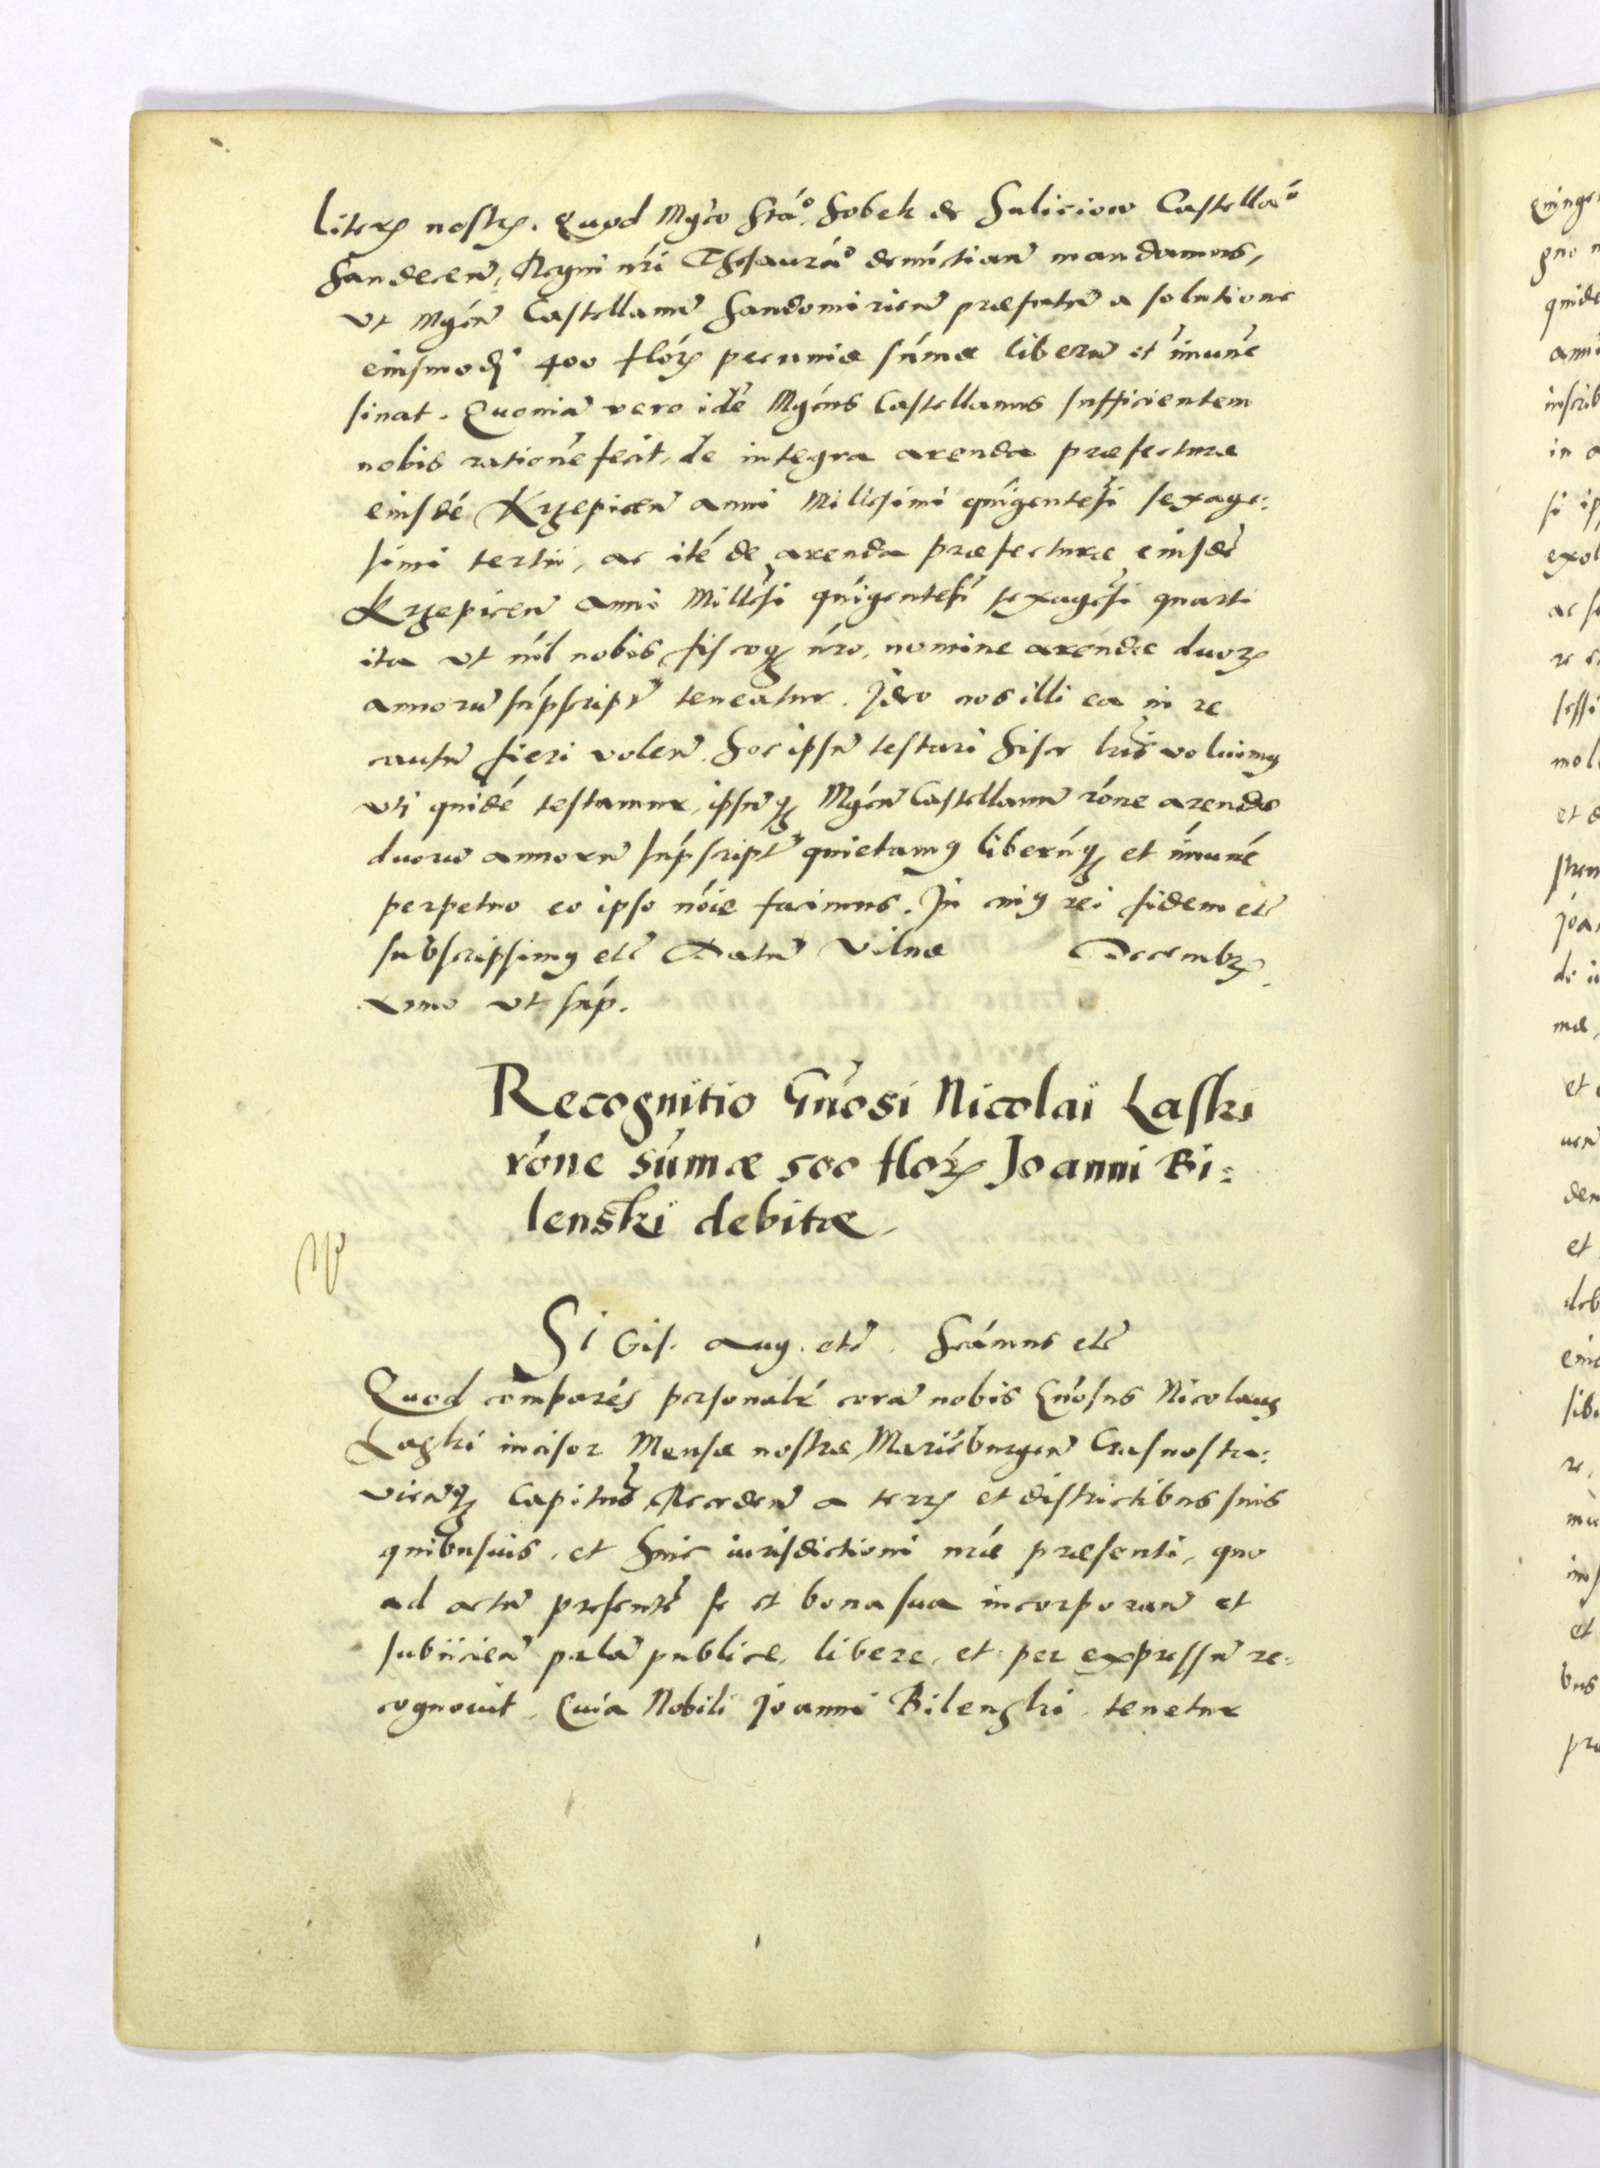 literꝝ nostrꝝ. Quod Mgco Stao Sobek de Suliciow Castellao
Sandecen, Regni nri Thesaurao demictian mandamus,
ut Mgcn Castellanu Sandomirien præfatu a solutione
eiusmodi 400 florꝝ pecuniæ sumæ liberu et imune
sinat. Quonia vero ide Mgcus Castellanus sufficientem
nobis ratione fecit, de integra arenda præfecturæ
eiusde Krzepicen anni Millesimi quigentesi sexage:
simi tertii, ac ite de arenda præfecturæ eiusde
Krzepicen anni Millesi quigentesi sexagesi quarti
ita ut nil nobis fiscoqꝫ nro, nomine arendæ duorꝝ
annoru suprscript teneatur. Ideo nos illi ea in re
cautu fieri volen. Hoc ipsu testari hisce lris voluimꝰ
uti quide testamur, ipsuqꝫ Mgcn Castellanu rone arendæ
duoru annoru suprscript quietamꝰ liberuqꝫ et imune
perpetuo eo ipso noie facimus. In cuiꝰ rei fidem etc
subscripsimꝰ etc Datu Vilnæ Decembꝝ.
Anno ut supr.
Recognitio Gnosi Nicolai Laski
rone sumæ 500 florꝝ Joanni Bi:
lenski debitæ.
Sigis. Aug. etc. Scamus etc
Quod compares personalr cora nobis Gnosus Nicolaus
Laski incisor Mensæ nostræ, Marieburgen Crasnosta:
vienqꝫ Capitnus, Receden a terrꝝ et districtibus suis
quibusvis, et huic iurisdictioni nræ præsenti, quo
ad actu præsente se et bona sua incorporan et
subiicien pala publice, libere, et per expressu re:
cognovit, Quia Nobili Joanni Bilenski, tenetur